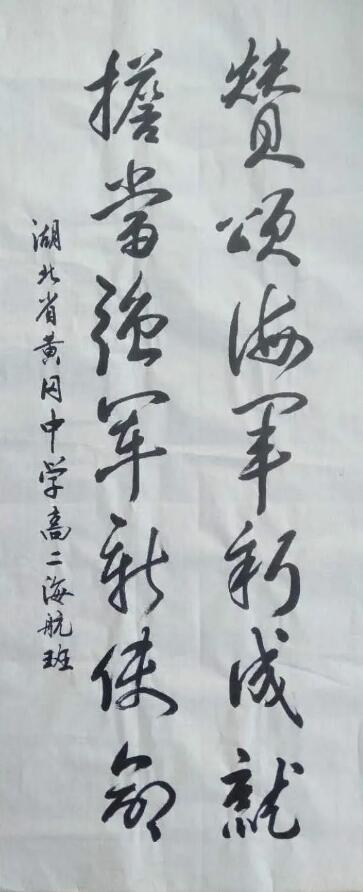 赞颂海军新成就
擔當强军新使命
湖北省黄冈中学高二海航班